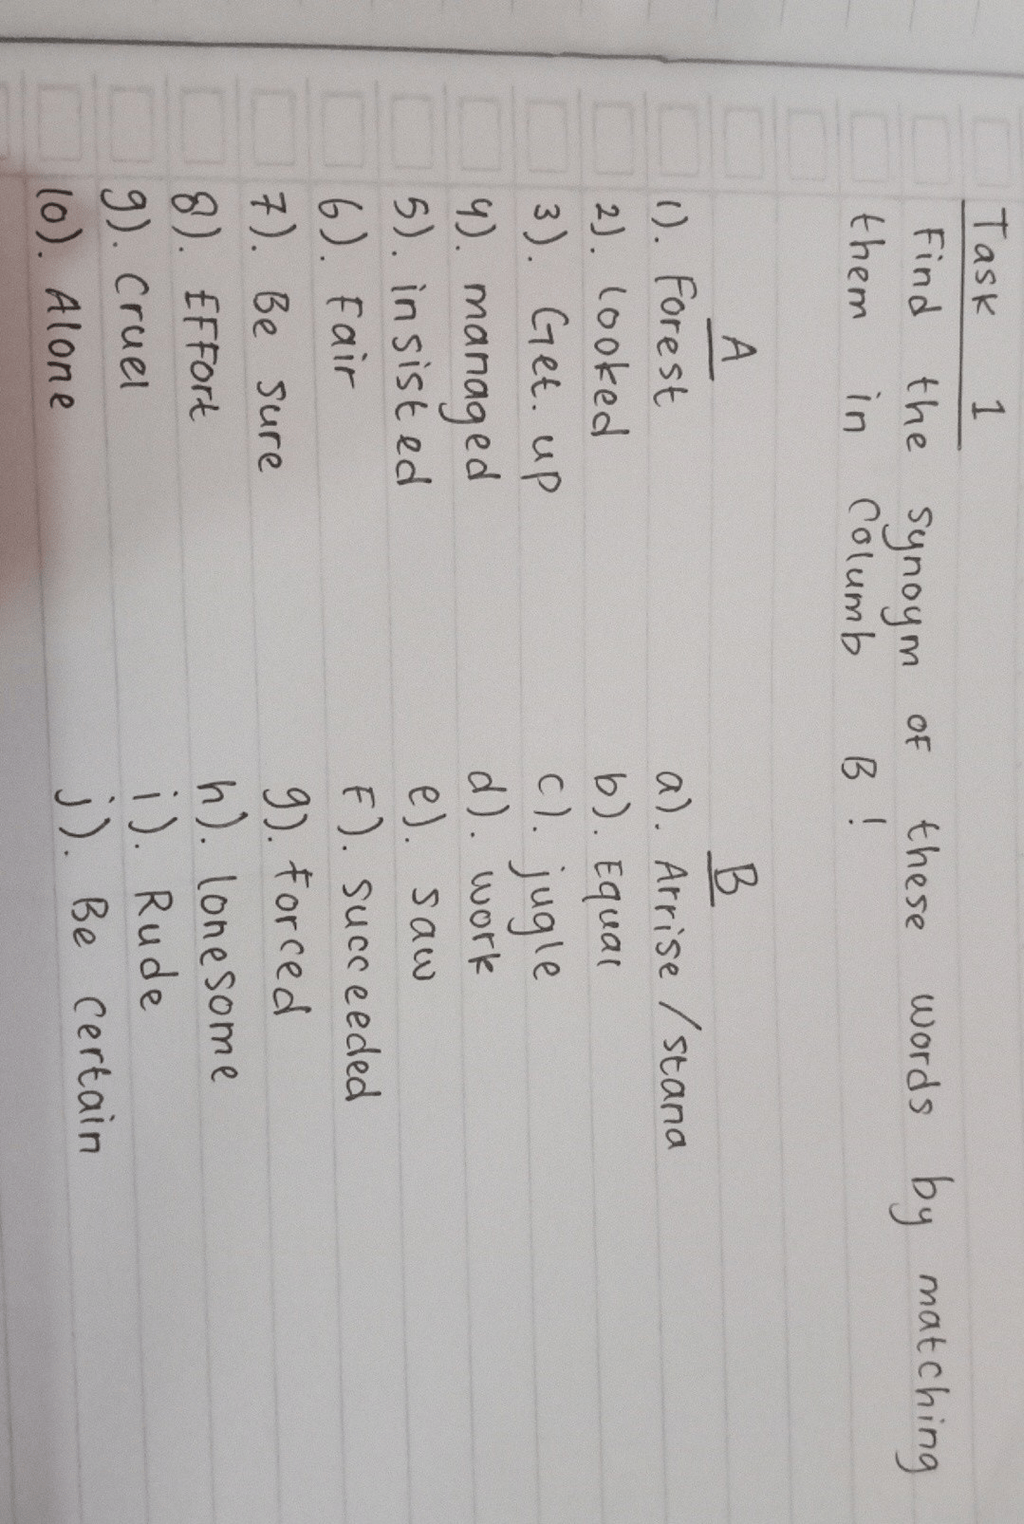 Task 1
Find the synoym of these words by matching
them in Columb B !
A B
1). Forest a). Arrise / stand
2). looked b). Equal
3). Get. up c). jugle
4). managed d). work
5). insisted e). saw
6). Fair F). succeeded
7). Be sure g). forced
8). EFFort h). lonesome
9). Cruel i). Rude
10). Alone j). Be Certain